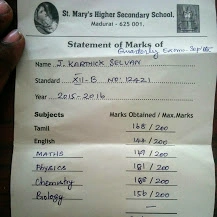 St. Mary's Higher Secondary School.
Madurai - 625 001.
Statement of Marks of
Quarterly Exam - Sep 2015
Name J. KARTHICK SELVAN
Standard XII-B NO: 12421
Year 2015-2016
Subjects Marks Obtained / Max.Marks
Tamil 168 / 200
English 144 / 200
MATHS 149 / 200
Physics 181 / 200
Chemistry 188 / 200
Biology 156 / 200